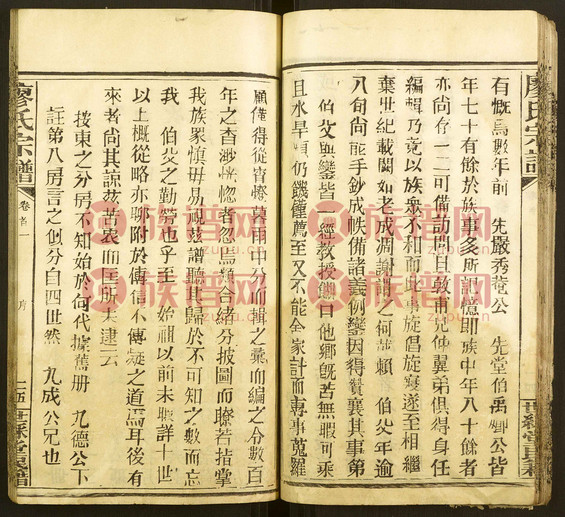 廖氏宗譜
有慨焉數年前 先嚴秀菴公 先堂伯禹卿公皆
年七十有餘於族事多所記憶即族中年八十餘者
亦尚存一二可備訪問且敦甫兄仲翼弟俱得身任
編輯乃竟以族眾不和而此事旋倡旋寢遂至相繼
棄世紀載闕如老成凋謝謂之何哉賴 伯炎年逾
八旬尚能手鈔成帙備諸義例鑾因得贊襄其事第
伯炎與鑾皆 經教授 口他鄉既苦無暇可乘
且水旱頻仍饑僅薦至又不能全家計而專事蒐羅
顧僅得從宵燈 雨中分而輯之彙而編之分數百
年之香渺恍惚者忽焉類合緒分披圖而瞭若指掌
我族眾慎毋易視茲譜聽其歸於不可知之數而忘
我 伯炎之勤勞也乎至 始祖以前未暇詳十世
以上概從略亦聊附於傳信不傳疑之道焉耳後有
來者尚其諒茲苦衷而匡所未逮云
按東之分房不知始於何代據舊册 九德公下
註第八房言之似分自四世然 九成公兄也
廖氏宗譜
卷首一
序
族譜网
zupu.cn